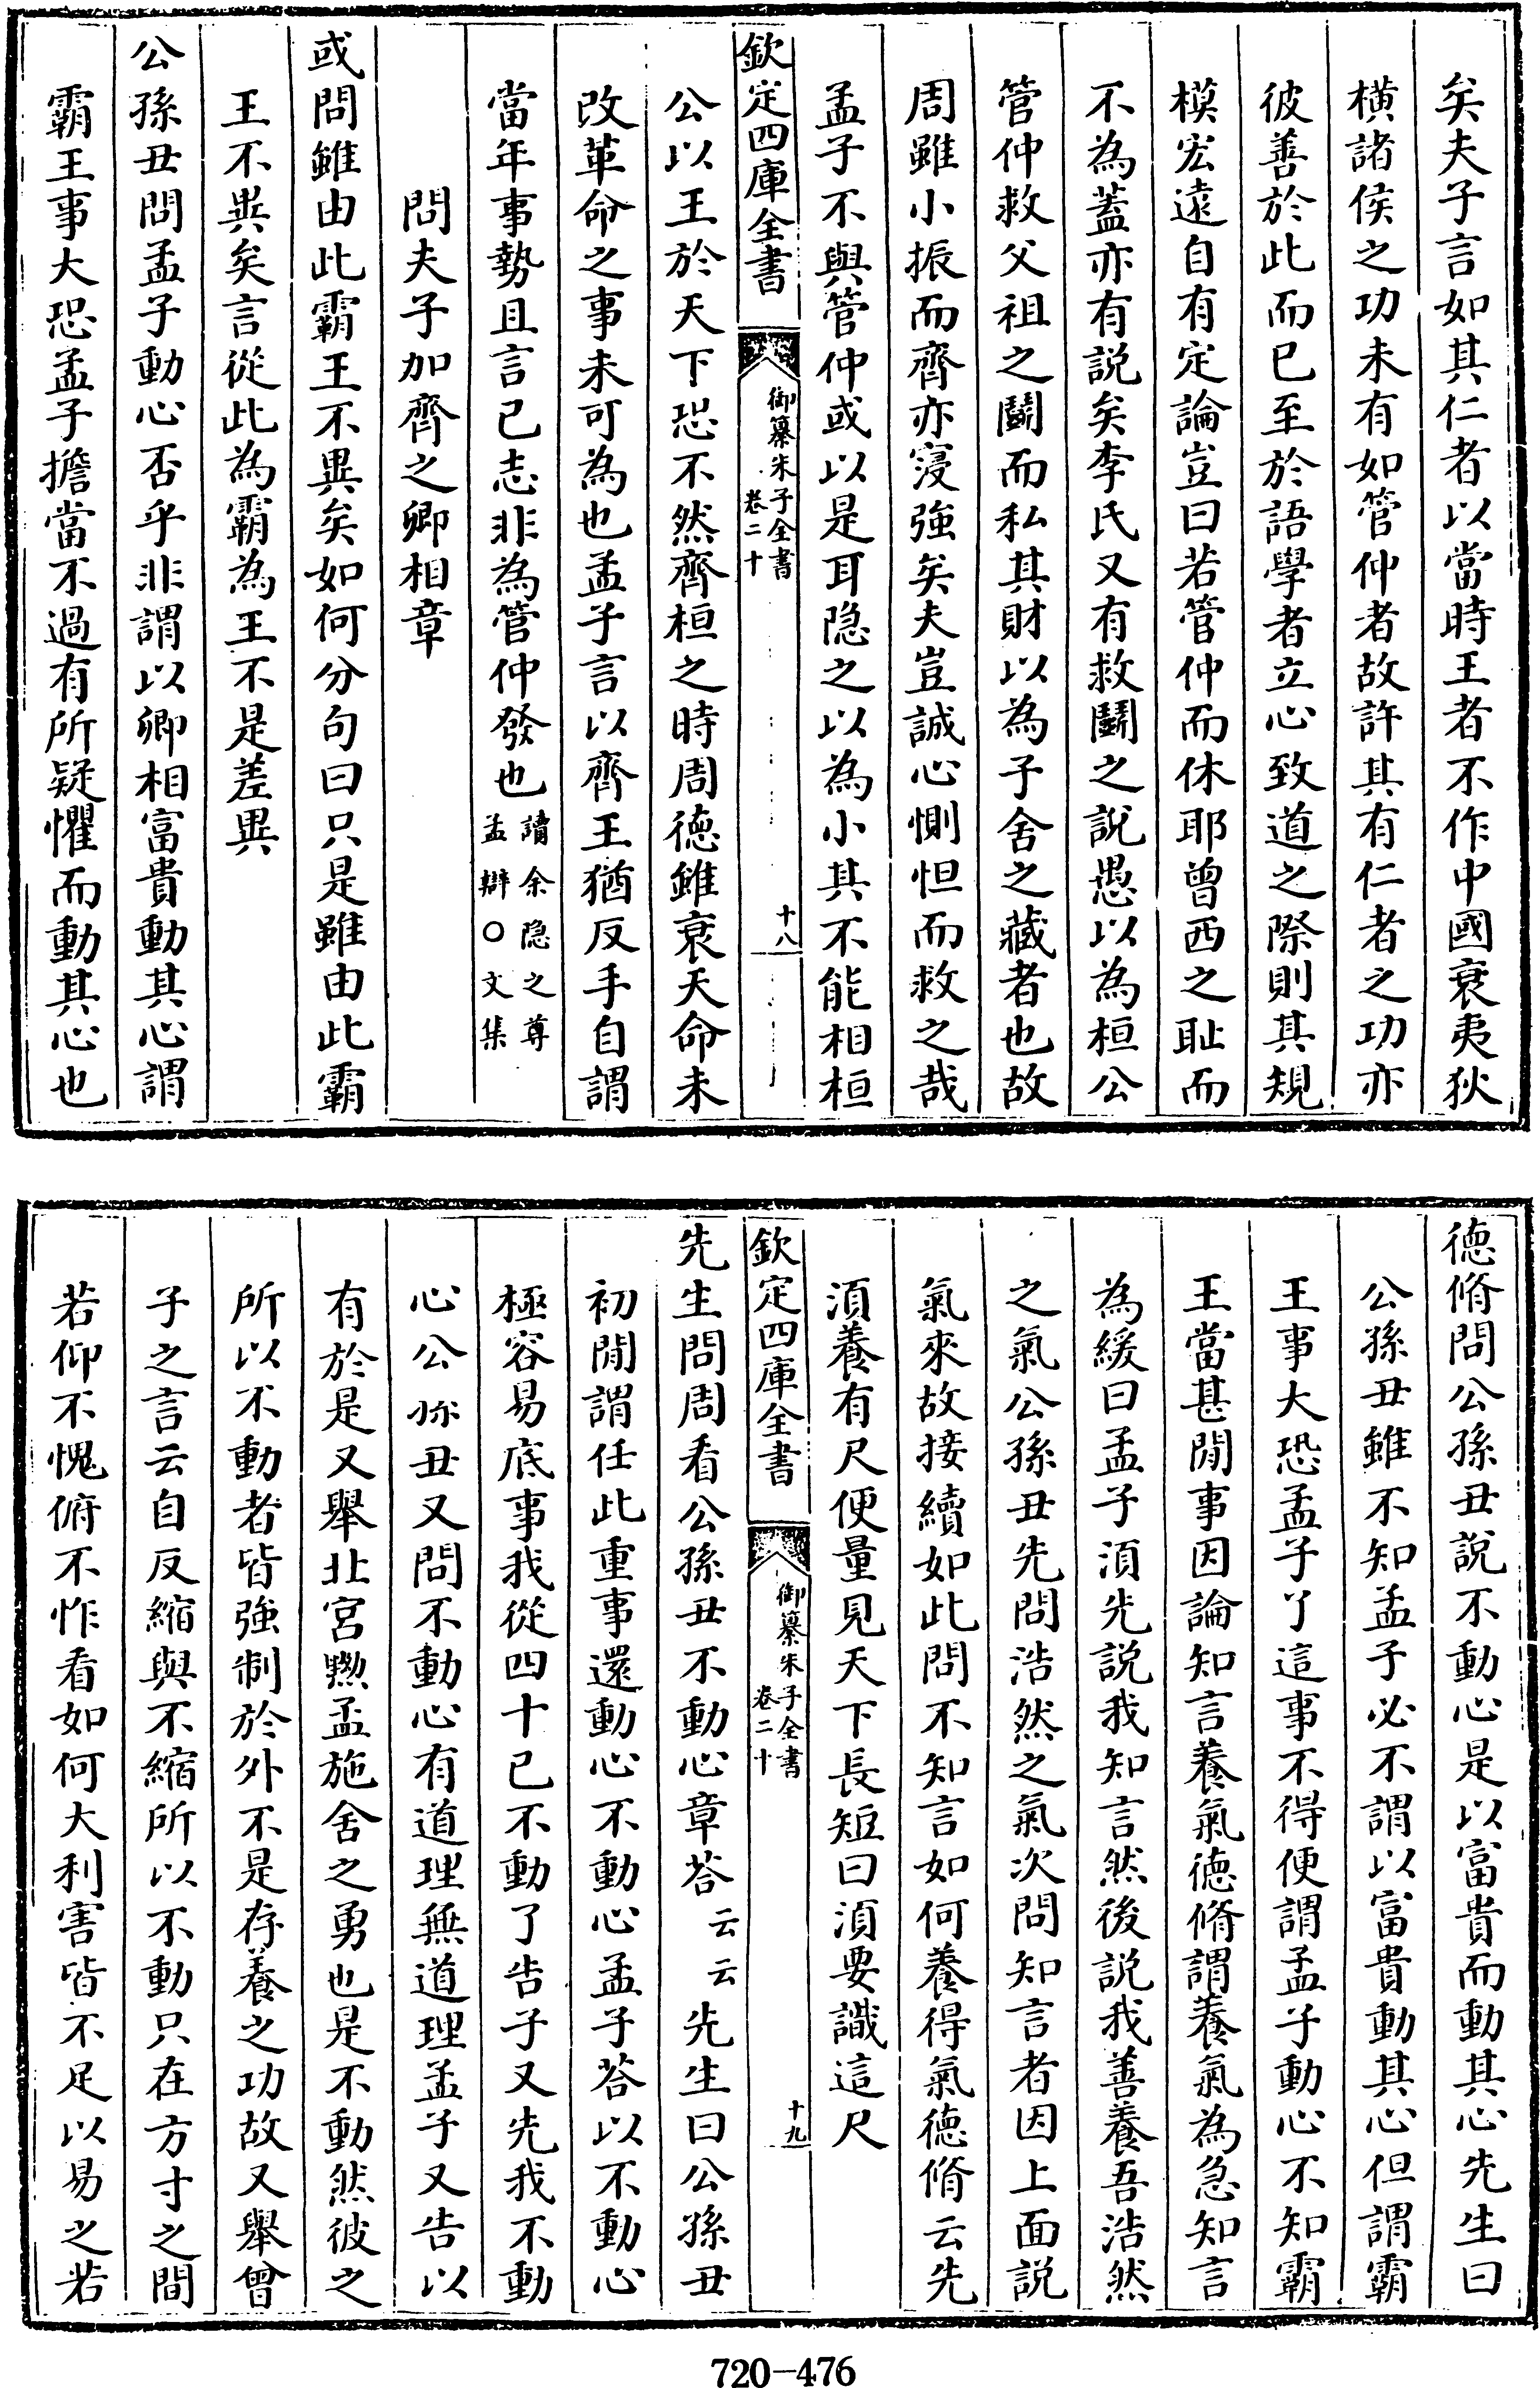 矣夫子言如其仁者以當時王者不作中國衰夷狄
橫諸侯之功未有如管仲者故許其有仁者之功亦
彼善於此而已至於語學者立心致道之際則其規
模宏遠自有定論豈曰若管仲而休耶曾西之耻而
不為葢亦有説矣李氏又有救鬭之説愚以為桓公
管仲救父祖之鬭而私其財以為子舍之藏者也故
周雖小振而齊亦寖強矣夫豈誠心惻怛而救之哉
孟子不與管仲或以是耳隐之以為小其不能相桓
欽定四庫全書
御纂朱子全書
卷二十
十八
公以王於天下恐不然齊桓之時周德雖衰天命未
改革命之事未可為也孟子言以齊王猶反手自謂
當年事勢且言已志非為管仲發也讀余隐之尊
孟辯○文集
問夫子加齊之卿相章
或問雖由此霸王不異矣如何分句曰只是雖由此霸
王不異矣言從此為霸為王不是差異
公孫丑問孟子動心否乎非謂以卿相富貴動其心謂
霸王事大恐孟子擔當不過有所疑懼而動其心也
德脩問公孫丑説不動心是以富貴而動其心先生曰
公孫丑雖不知孟子必不謂以富貴動其心但謂霸
王事大恐孟子了這事不得便謂孟子動心不知霸
王當甚閒事因論知言養氣德脩謂養氣為急知言
為緩曰孟子須先説我知言然後説我善養吾浩然
之氣公孫丑先問浩然之氣次問知言者因上面説
氣來故接續如此問不知言如何養得氣德脩云先
須養有尺便量見天下長短曰須要識這尺
欽定四庫全書
御纂朱子全書
卷二十
十九
先生問周看公孫丑不動心章荅云云先生曰公孫丑
初閒謂任此重事還動心不動心孟子荅以不動心
極容易底事我從四十已不動了告子又先我不動
心公孫丑又問不動心有道理無道理孟子又告以
有於是又舉北宮黝孟施舍之勇也是不動然彼之
所以不動者皆強制於外不是存養之功故又舉曾
子之言云自反縮與不縮所以不動只在方寸之間
若仰不愧俯不怍看如何大利害皆不足以易之若
720-476